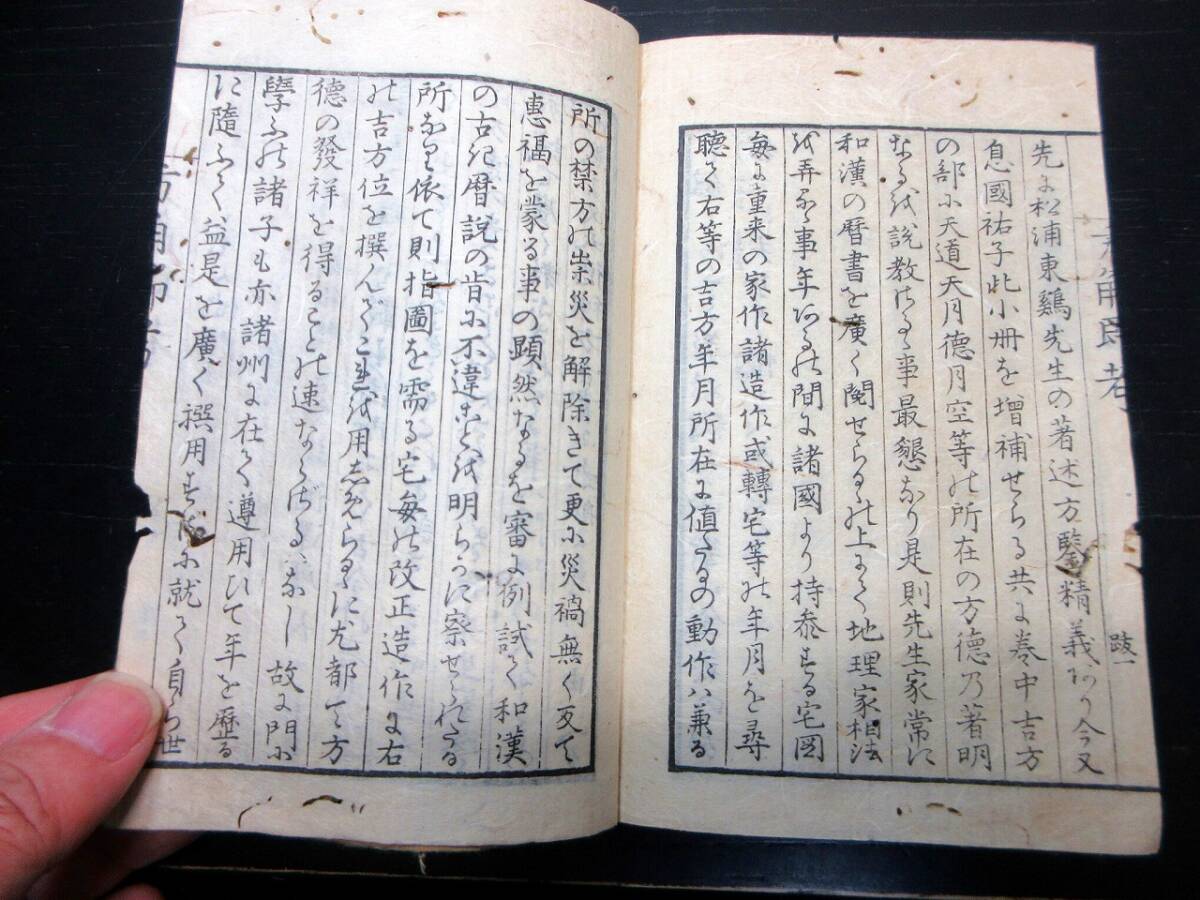 先に松浦東鷄先生の著述方鑒精義あり今又
息國祐子此小冊を増補せらる共に巻中吉方
の部に天道天月德月空等の所在の方德乃著明
なるを説教せる事最懇なり是則先生家常に
和漢の暦書を廣く閲せらるの上にて地理家相法
を弄ふ事年あるの間に諸國より持参する宅図
毎に重来の家作諸造作或轉宅等の年月を尋
聴て右等の吉方年月所在に値たるの動作ハ兼る
跋一
所の禁方の祟災を解除きて更に災禍無く反て
惠福を蒙る事の顕然なるを審に例試て和漢
の古き暦説の旨に不違ことを明らかに察せられたる
所なり依て則指圖を需る宅毎の改正造作に右
の吉方位を撰んでこれを用しめらるゝに尤都て方
德の發祥を得ることの速ならざるハなし故に門に
學ふの諸子も亦諸州に在て遵用ひて年を歴る
に隨ふて益是を廣く撰用す に就て自ら世